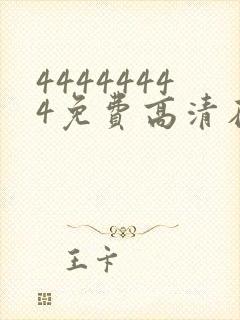 4444444
4免費高清
王卡